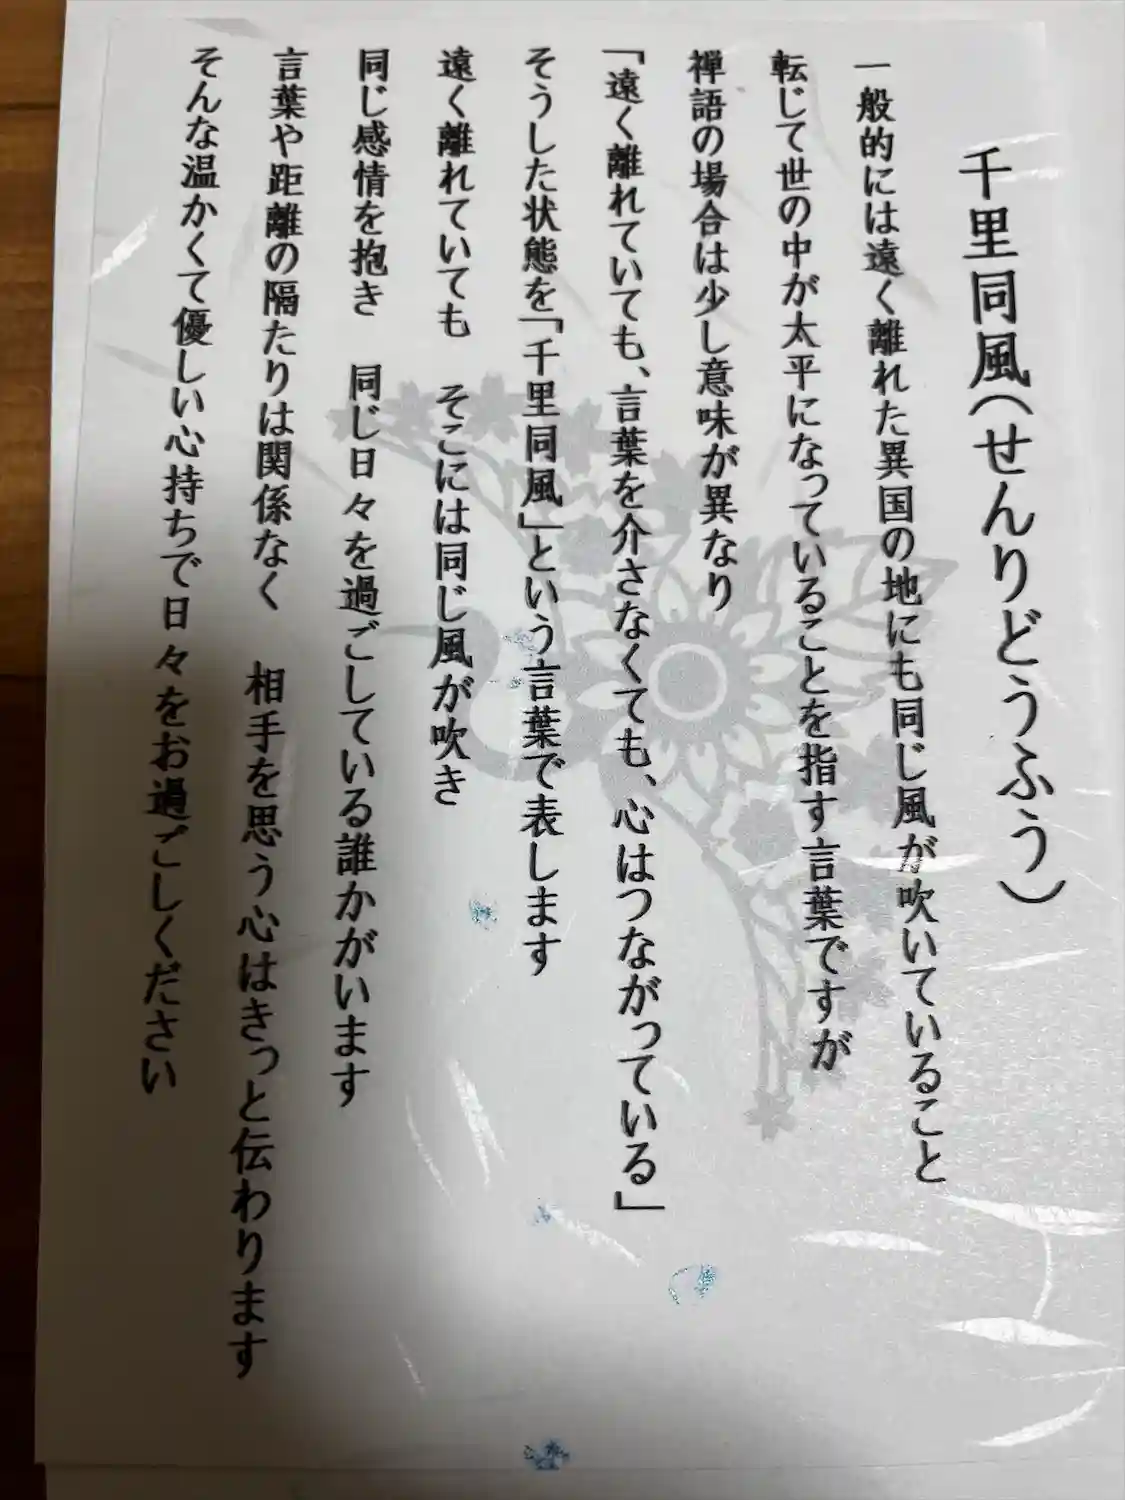 千里同風(せんりどうふう)
一般的には遠く離れた異国の地にも同じ風が吹いていること
転じて世の中が太平になっていることを指す言葉ですが
禅語の場合は少し意味が異なり
「遠く離れていても、言葉を介さなくても、心はつながっている」
そうした状態を「千里同風」という言葉で表します
遠く離れていても　そこには同じ風が吹き
同じ感情を抱き　同じ日々を過ごしている誰かがいます
言葉や距離の隔たりは関係なく　相手を思う心はきっと伝わります
そんな温かくて優しい心持ちで日々をお過ごしください